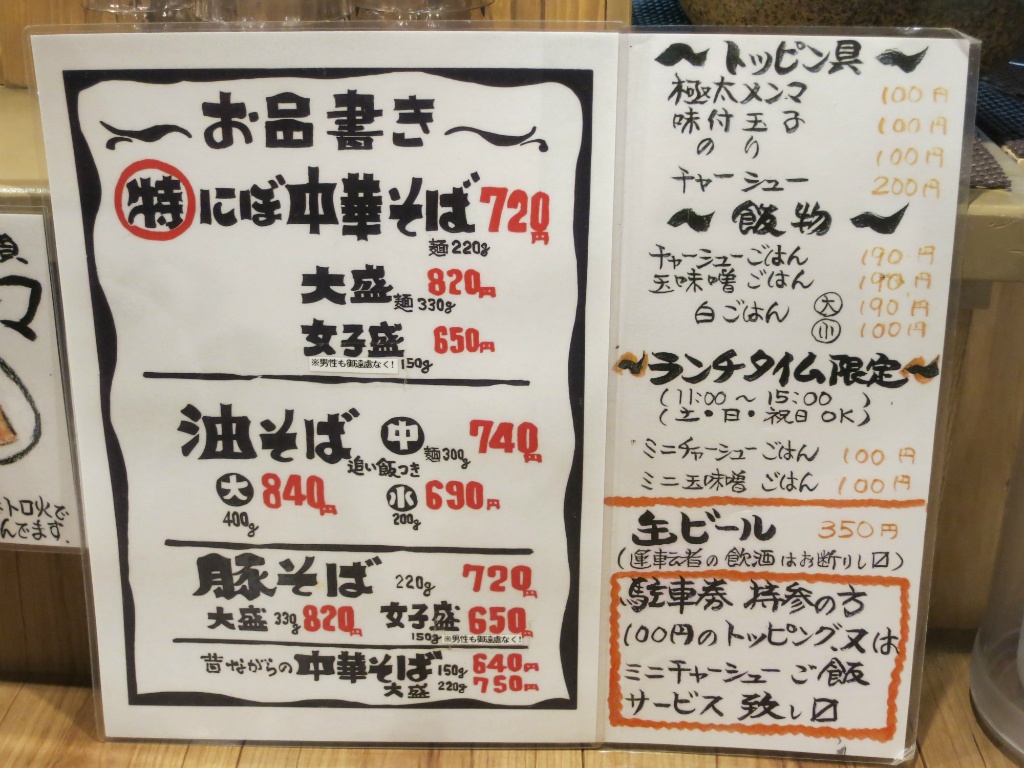 お品書き
特にぼ中華そば 720円
麺220g
大盛 麺330g 820円
女子盛 150g 650円
※男性も御遠慮なく!
油そば 中 麺300g 740円
追い飯つき
大 840円 小 690円
400g 200g
豚そば 220g 720円
大盛 330g 820円 女子盛 150g 650円
※男性も御遠慮なく!
昔ながらの中華そば 150g 640円
大盛 220g 750円
トッピン具
極太メンマ 100円
味付玉子 100円
のり 100円
チャーシュー 200円
飯物
チャーシューごはん 190円
玉味噌ごはん 190円
白ごはん 大 190円
小 100円
ランチタイム限定
(11:00〜15:00)
(土・日・祝日OK)
ミニチャーシューごはん 100円
ミニ玉味噌ごはん 100円
生ビール 350円
(運転者の飲酒はお断りし〼)
駐車券持参の方
100円のトッピング、又は
ミニチャーシューご飯
サービス致し〼
マ
トロ火で
んでます。